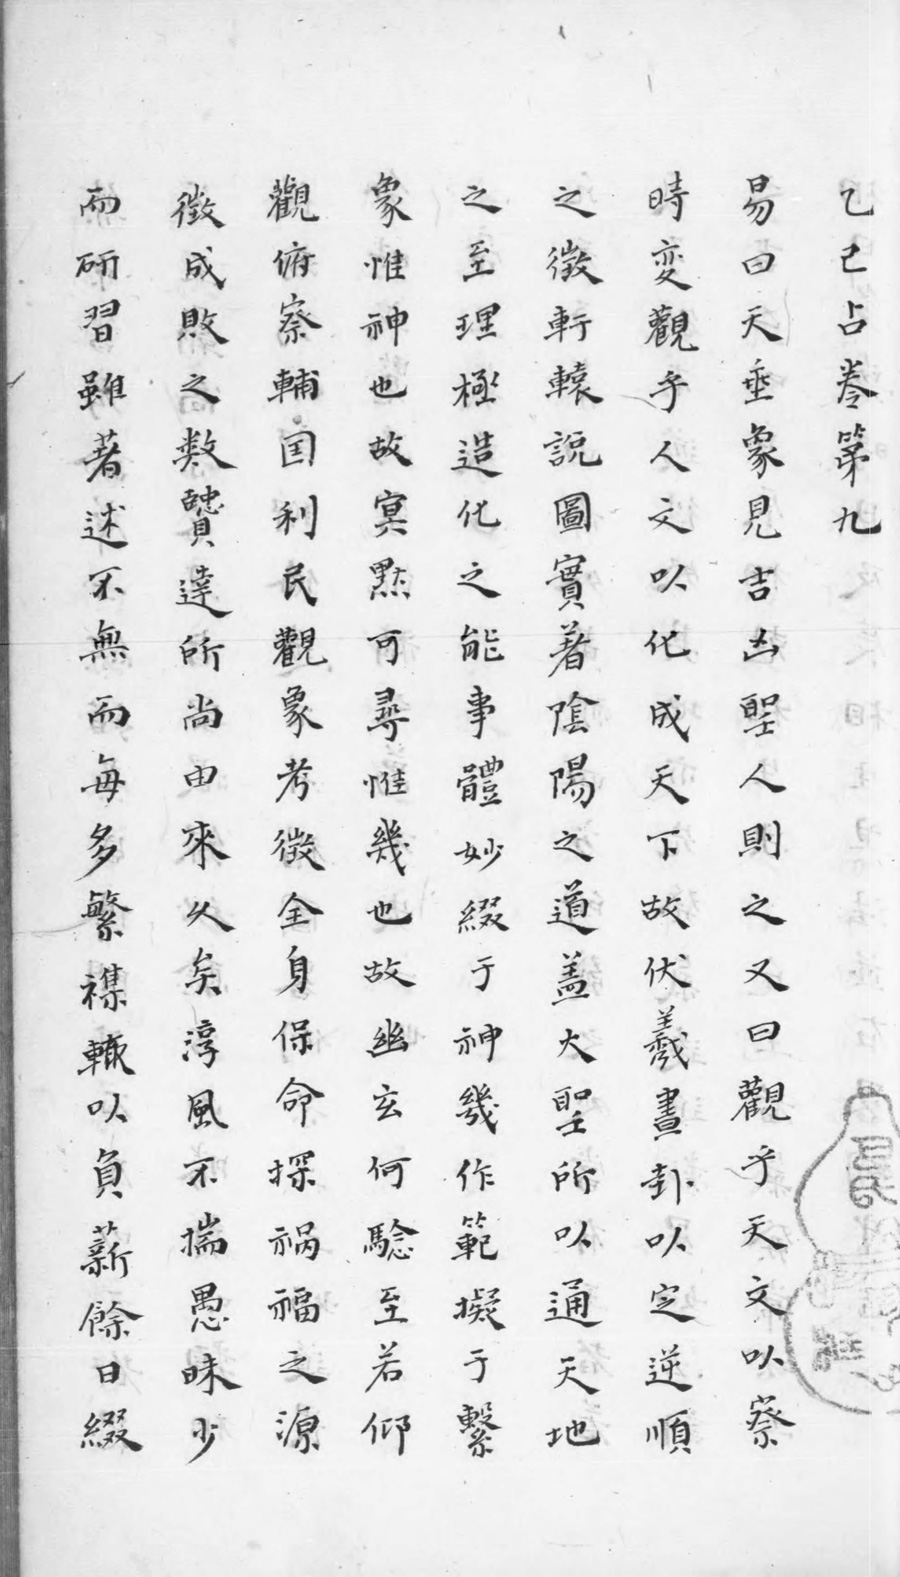 乙巳占卷第九
易曰天垂象見吉凶聖人則之又曰觀乎天文以察
時变觀乎人文以化成天下故伏羲畫卦以定逆順
之徵軒轅説圖實著陰陽之道盖大聖所以通天地
之至理極造化之能事體妙綴于神幾作範擬于繫
象惟神也故冥點可尋惟幾也故幽玄何驗至若仰
觀俯察輔国利民觀象考徵全身保命探禍福之源
徵成敗之数賛達所尚由來久矣淳風不揣愚昧少
而研習雖著述不無而每多繁襍輙以負薪餘日綴